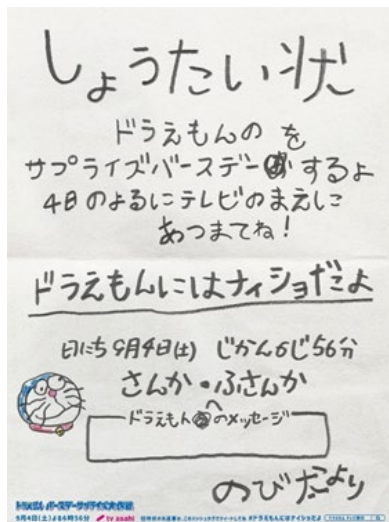 しょうたい状
ドラえもんの を
サプライズバースデー するよ
4日のよるにテレビのまえに
あつまてね！
ドラえもんにはナイショだよ
日にち 9月4日(土) じかん6じ56分
さんか・ふさんか
ドラえもん のメッセージ
のびだより
ドラえもん バースデーサプライズ大作戦
9月4日(土)よる6時56分 tv asahi